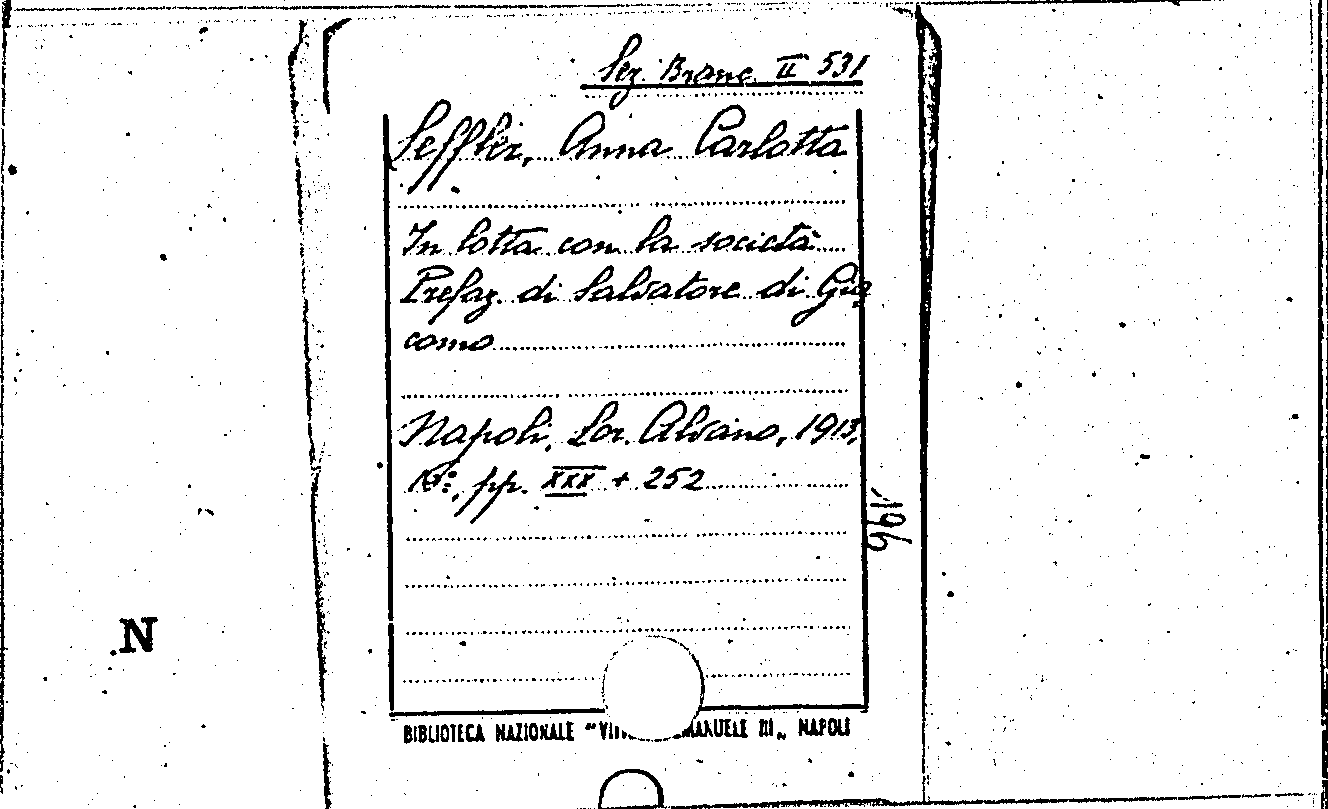 Sez. Branc. II 531
Leffler, Anna Carlotta
In lotta con la società
Prefaz. di Salvatore di Gia
como
Napoli, Lor. Alvano, 1913,
16º, pp. XXX + 252
196
N
BIBLIOTECA NAZIONALE "VITT MANUELE III„ NAPOLI